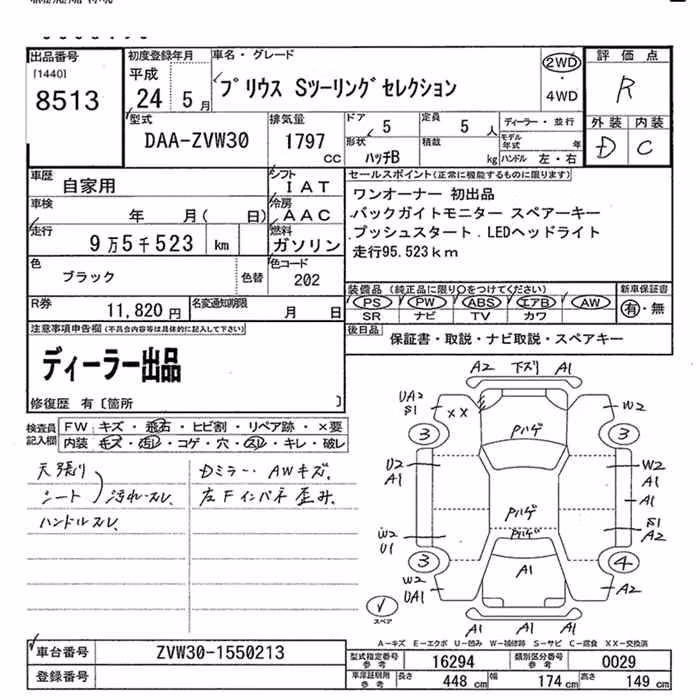 出品番号 初度登録年月 車名・グレード 評価点
[1440] 平成 プリウス Sツーリングセレクション 2WD R
8513 24 5月 ・4WD
型式 排気量 ドア 定員 ディーラー・並行 外装 内装
DAA-ZVW30 1797 5 5人 モデル年式 年 D C
CC 形状 ハッチB 積載 kg ハンドル 左・右
車歴 自家用 シフト IAT セールスポイント(正常に機能するものに限ります)
車検 年 月( 日) 冷房 AAC ワンオーナー 初出品
バックガイトモニター スペアーキー
走行 9万5千523 km 燃料 ガソリン プッシュスタート.LEDヘッドライト
走行95.523km
色 ブラック 色替 色コード 202
装備品(純正品に限り○をつけてください) 新車保証書
PS PW ABS エアB AW 有・無
R券 11,820円 名変通知期限 月 日 SR ナビ TV カワ
注意事項申告欄(不具合内容等は具体的に記入して下さい) 後日品 保証書・取説・ナビ取説・スペアキー
ディーラー出品
修復歴 有〔箇所 〕
検査員記入欄 FW キズ・飛石・ヒビ割・リペア跡・×要
内装 キズ・汚れ・コゲ・穴・スレ・キレ・破レ
天張り Dミラー・AWキズ、
シート 汚れ・スレ、 左Fインパネ歪み、
ハンドルスレ、
A2 下ズリ A1
UA2 S1 XX W2
3 Pハゲ 3
U2 A1 W2
A1
Pハゲ S1 A2
W2 U1 Pハゲ
3 A1 4
W2 UA1 A2
スペア A1 A1 A1
A-キズ E-エクボ U-凹み W-補修跡 S-サビ C-腐食 XX-交換済
車台番号 ZVW30-1550213 型式指定番号 参考 16294 類別区分番号 参考 0029
登録番号 車庫証明用 参考 長さ 448cm 幅 174cm 高さ 149cm